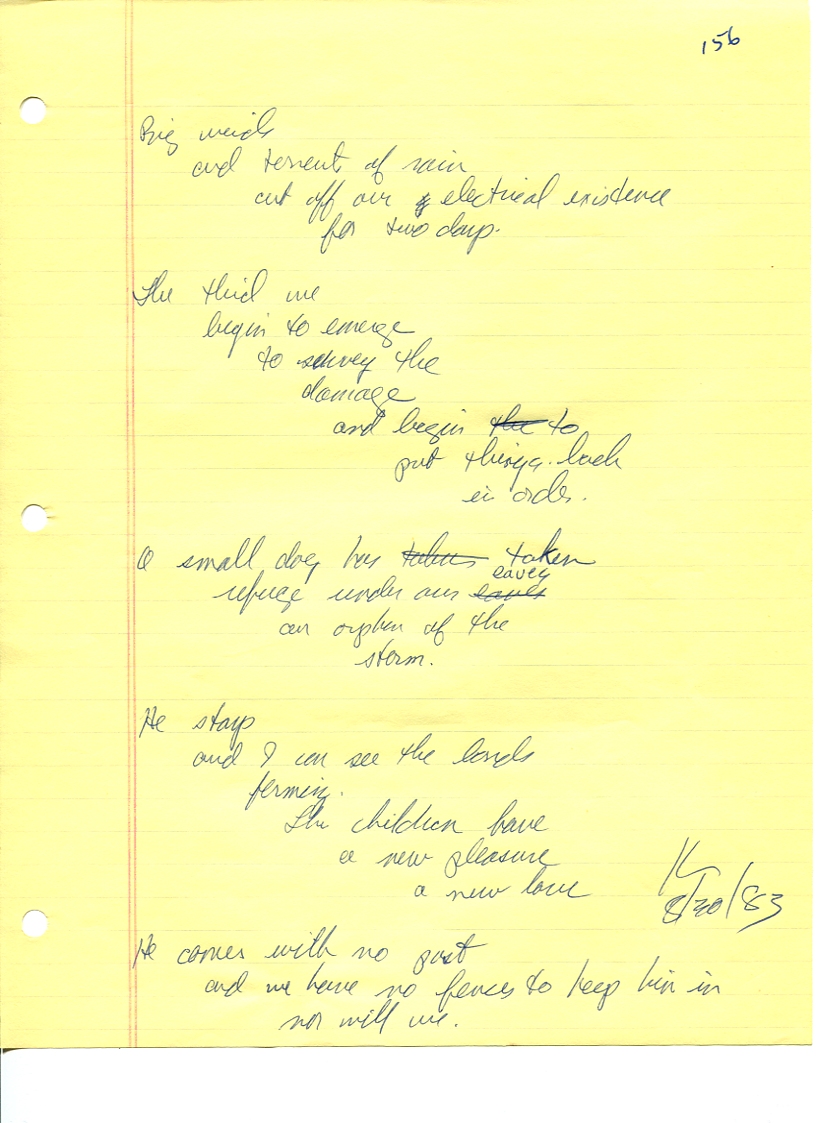 156
Big winds
and torrent of rain
cut off our electrical existence
for two days.
The third we
begin to emerge
to survey the
damage
and begin the to
put things back
in order.
A small dog has taken taken
eaves
refuge under our eaves
an orphan of the
storm.
He stays
and I can see the bonds
forming.
The children have
a new pleasure
a new love
K
8/20/83
He comes with no past
and we have no fences to keep him in
nor will we.